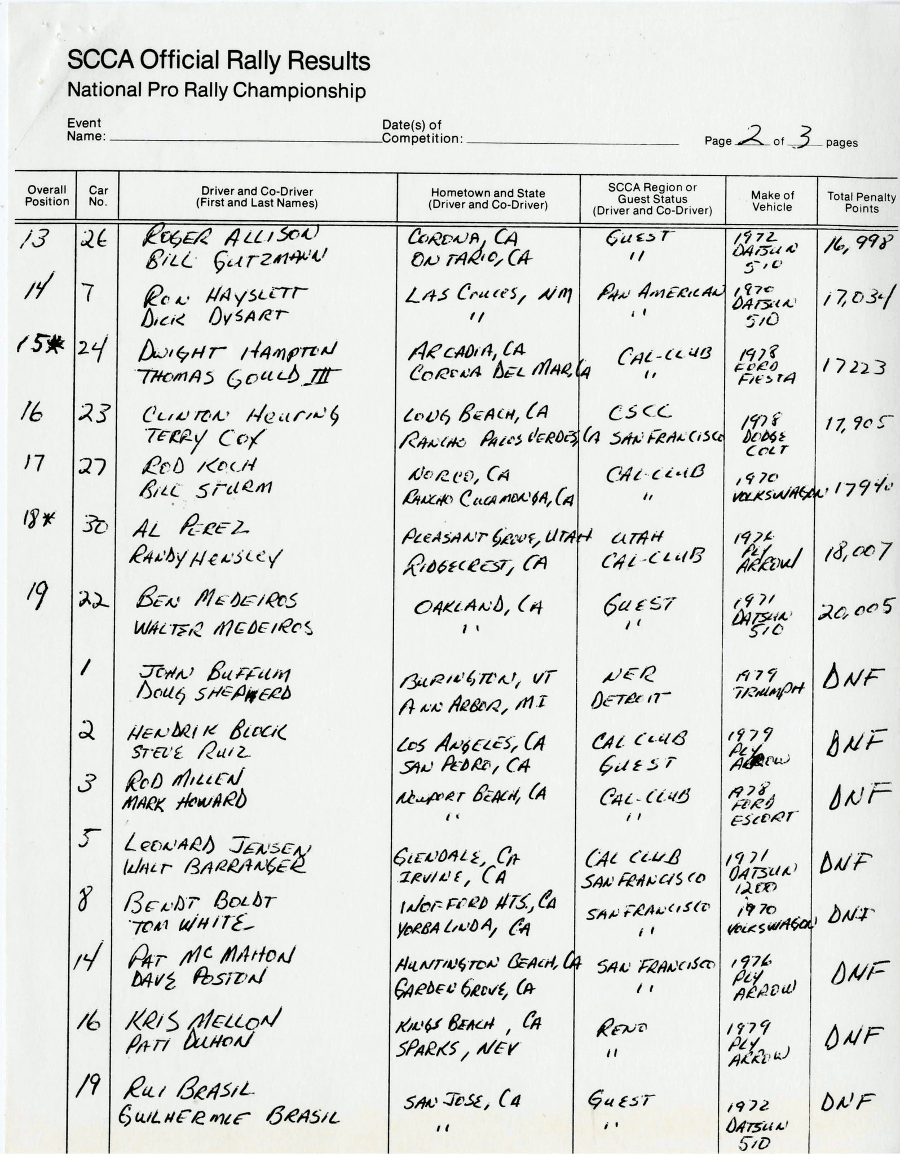 SCCA Official Rally Results
National Pro Rally Championship
Event Name: Date(s) of Competition: Page 2 of 3 pages
Overall Position Car No. Driver and Co-Driver (First and Last Names) Hometown and State (Driver and Co-Driver) SCCA Region or Guest Status (Driver and Co-Driver) Make of Vehicle Total Penalty Points
13 26 ROGER ALLISON CORONA, CA GUEST 1972 16,998
BILL GUTZMANN ONTARIO, CA " DATSUN
510
14 7 RON HAYSLETT LAS CRUCES, NM PAN AMERICAN 1970 17,034
DICK DYSART " " DATSUN
510
15* 24 DWIGHT HAMPTON ARCADIA, CA CAL-CLUB 1978 17223
THOMAS GOULD III CORONA DEL MAR, CA " FORD
FIESTA
16 23 CLINTON HERRING LONG BEACH, CA CSCC 1978 17,905
TERRY COX RANCHO PALOS VERDES, CA SAN FRANCISCO DODGE
COLT
17 27 ROD KOCH NORCO, CA CAL-CLUB 1970
BILL STURM RANCHO CUCAMONGA, CA " VOLKSWAGON
18* 30 AL PEREZ PLEASANT GROVE, UTAH UTAH 1976 18,007
RANDY HENSLEY RIDGECREST, CA CAL-CLUB PLY
ARROW
19 22 BEN MEDEIROS OAKLAND, CA GUEST 1971 20,005
WALTER MEDEIROS " " DATSUN
510
1 JOHN BUFFUM BURINGTON, VT NER 1979 DNF
DOUG SHEPHERD ANN ARBOR, MI DETROIT TRIUMPH
2 HENDRIK BLOCK LOS ANGELES, CA CAL CLUB 1979 DNF
STEVE RUIZ SAN PEDRO, CA GUEST PLY
ARROW
3 ROD MILLEN NEWPORT BEACH, CA CAL-CLUB 1978 DNF
MARK HOWARD " " FORD
ESCORT
5 LEONARD JENSEN GLENDALE, CA CAL CLUB 1971 DNF
WALT BARRANGER IRVINE, CA SAN FRANCISCO DATSUN
1200
8 BENDT BOLDT HTS, CA SAN FRANCISCO 1970 DNF
TOM WHITE YORBA LINDA, CA " VOLKSWAGON
14 PAT MC MAHON HUNTINGTON BEACH, CA SAN FRANCISCO 1976 DNF
DAVE POSTON GARDEN GROVE, CA " PLY
ARROW
16 KRIS MELLON KINGS BEACH, CA RENO 1979 DNF
PATI DUHON SPARKS, NEV " PLY
ARROW
19 RUI BRASIL SAN JOSE, CA GUEST 1972 DNF
GUILHERMIE BRASIL " " DATSUN
510